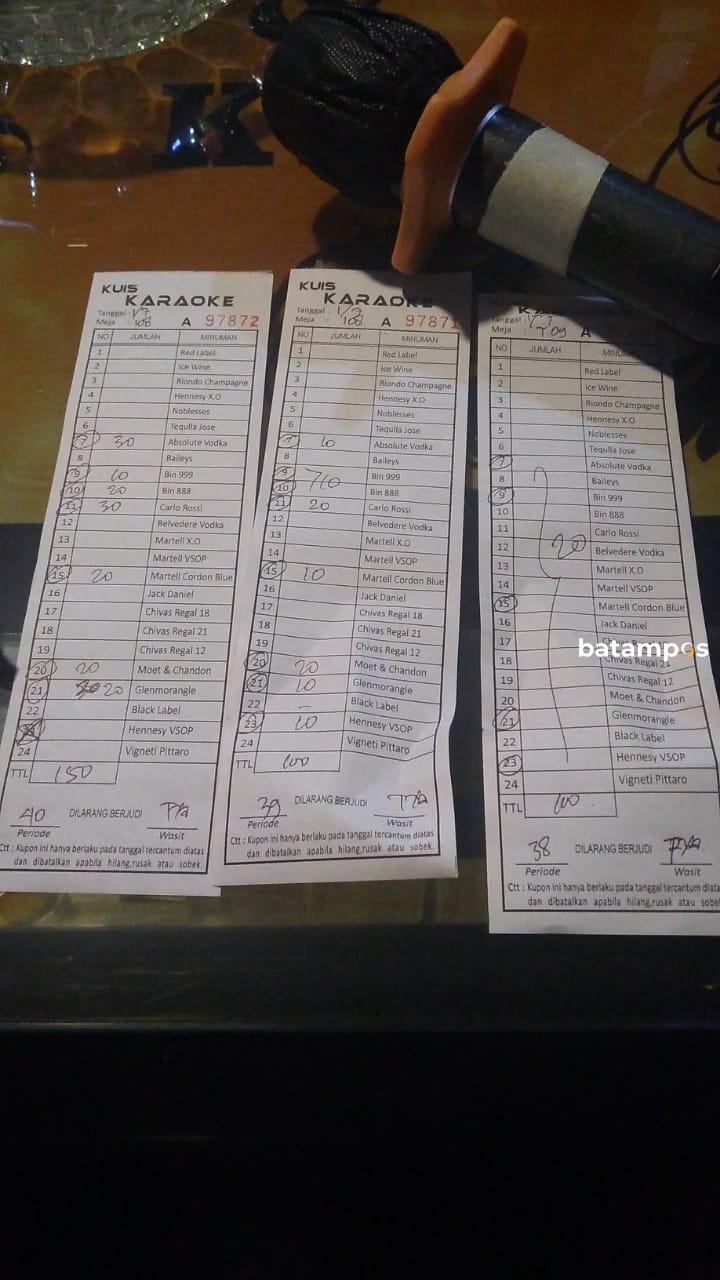 KUIS
KARAOKE
Tanggal : 1/7
Meja : 108 A 97872
NO JUMLAH MINUMAN
1 Red Label
2 Ice Wine
3 Riondo Champagne
4 Hennesy X.O
5 Noblesses
6 Tequila Jose
7 30 Absolute Vodka
8 Baileys
9 10 Bin 999
10 20 Bin 888
11 30 Carlo Rossi
12 Belvedere Vodka
13 Martell X.O
14 Martell VSOP
15 20 Martell Cordon Blue
16 Jack Daniel
17 Chivas Regal 18
18 Chivas Regal 21
19 Chivas Regal 12
20 20 Moet & Chandon
21 20 Glenmorangle
22 Black Label
Hennesy VSOP
24 Vigneti Pittaro
TTL 150
40 DILARANG BERJUDI
Periode Wasit
Ctt : Kupon ini hanya berlaku pada tanggal tercantum diatas
dan dibatalkan apabila hilang,rusak atau sobek.
KUIS
KARAOKE
Tanggal : 1/7
Meja : 108 A 97871
NO JUMLAH MINUMAN
1 Red Label
2 Ice Wine
3 Riondo Champagne
4 Hennesy X.O
5 Noblesses
6 Tequila Jose
7 10 Absolute Vodka
8 Baileys
9 Bin 999
10 Bin 888
11 20 Carlo Rossi
12 Belvedere Vodka
13 Martell X.O
14 Martell VSOP
15 10 Martell Cordon Blue
16 Jack Daniel
17 Chivas Regal 18
18 Chivas Regal 21
19 Chivas Regal 12
20 20 Moet & Chandon
21 10 Glenmorangle
22 Black Label
23 10 Hennesy VSOP
24 Vigneti Pittaro
TTL 100
39 DILARANG BERJUDI
Periode Wasit
Ctt : Kupon ini hanya berlaku pada tanggal tercantum diatas
dan dibatalkan apabila hilang,rusak atau sobek.
Tanggal :
Meja : A
NO JUMLAH
1 Red Label
2 Ice Wine
3 Riondo Champagne
4 Hennesy X.O
5 Noblesses
6 Tequila Jose
7 Absolute Vodka
8 Baileys
9 Bin 999
10 Bin 888
11 Carlo Rossi
12 20 Belvedere Vodka
13 Martell X.O
14 Martell VSOP
15 Martell Cordon Blue
16 Jack Daniel
17
18 Chivas Regal 21
19 Chivas Regal 12
20 Moet & Chandon
21 Glenmorangle
22 Black Label
23 Hennesy VSOP
24 Vigneti Pittaro
TTL 100
38 DILARANG BERJUDI
Periode Wasit
Ctt : Kupon ini hanya berlaku pada tanggal tercantum
dan dibatalkan apabila hilang,rusak atau
batampos
K